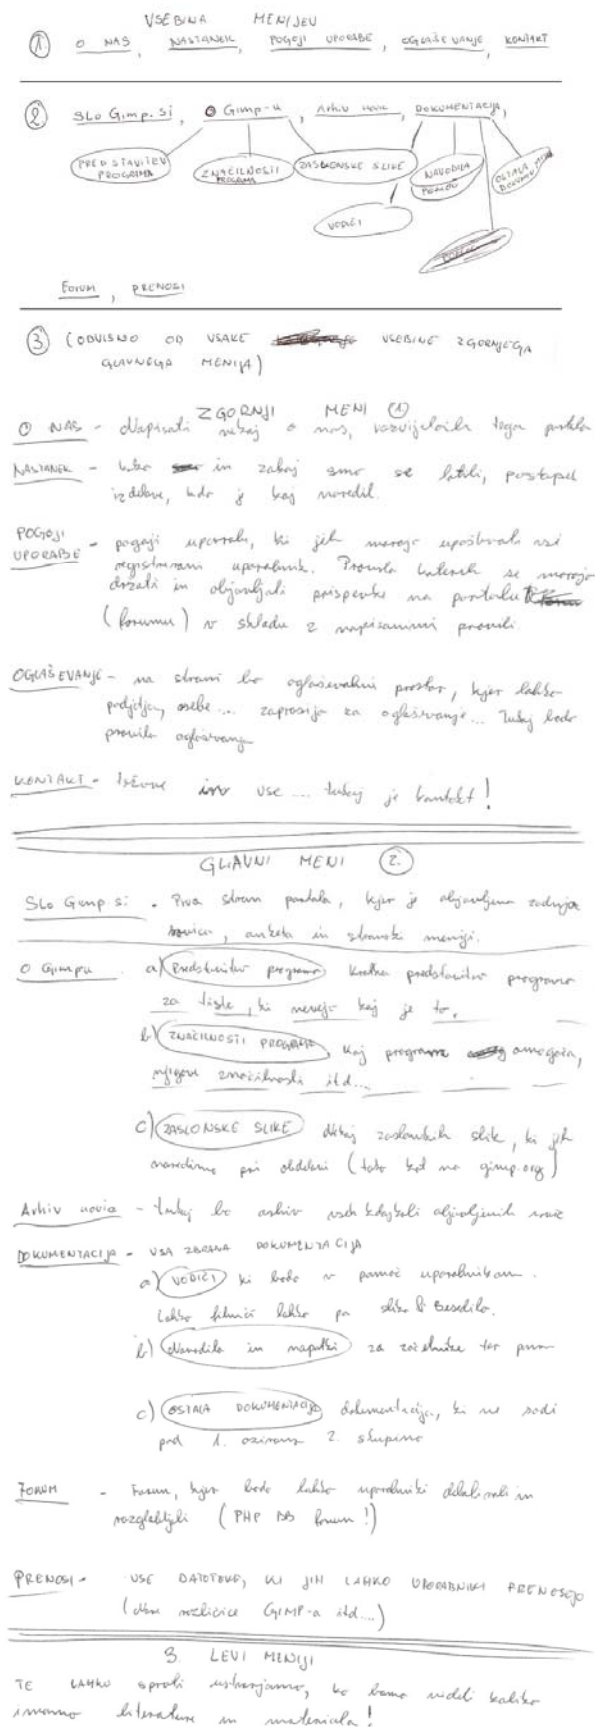 VSEBINA MENIJEV
1. O NAS, NASTANEK, POGOJI UPORABE, OGLAŠEVANJE, KONTAKT
2. SLO Gimp.si, O Gimp-u, Arhiv novic, DOKUMENTACIJA,
PREDSTAVITEV PROGRAMA
ZNAČILNOSTI PROGRAMA
ZASLONSKE SLIKE
NAVODILA
OSTALA
VODIČI
Forum, PRENOSI
3. (ODVISNO OD VSAKE VSEBINE ZGORNJEGA
GLAVNEGA MENIJA)
ZGORNJI MENI 1
O NAS - Napisati nekaj o nas, razvijalcih tega portala
NASTANEK - kako in zakaj smo se lotili, postopek
izdelave, kdo je kaj naredil.
POGOJI
UPORABE - pogoji uporabe, ki jih morajo upoštevati vsi
registrirani uporabniki. Pravila katerih se morajo
držati in objavljati prispevke na portalu
(forumu) v skladu z napisanimi pravili
OGLAŠEVANJE - na strani bo oglaševalni prostor, kjer lahko
podjetja, osebe ... zaprosijo za oglaševanje ... Tukaj bodo
pravila oglaševanja
KONTAKT - in vse .... tukaj je kontakt!
GLAVNI MENI 2.
SLO Gimp si - Prva stran portala, kjer je objavljena zadnja
novica, anketa in stranski meniji.
O Gimpu a) Predstavitev programa kratka predstavitev programa
za tiste, ki nevejo kaj je to.
b) ZNAČILNOSTI PROGRAMA, kaj program omogoča,
njegove značilnosti itd...
c) ZASLONSKE SLIKE nekaj zaslonskih slik, ki jih
naredimo pri obdelavi (tako kot na gimp.org)
Arhiv novic - tukaj bo arhiv vseh kdajkoli objavljenih novic
DOKUMENTACIJA - VSA ZBRANA DOKUMENTACIJA
a) VODIČI ki bodo v pomoč uporabnikom.
Lahko filmčki lahko pa slika & Besedilo.
b) Navodila in napotki za začetnike ter
c) OSTALA DOKUMENTACIJA dokumentacija, ki ne sodi
pod 1. oziroma 2. skupino
FORUM - Forum, kjer bodo lahko uporabniki debatirali in
razglabljali (PHP BB forum!)
PRENOSI - VSE DATOTEKE, KI JIH LAHKO UPORABNIKI PRENESEJO
(različice GIMP-a itd...)
3. LEVI MENIJI
TE LAHKO sproti ustvarjamo, ko bomo videli koliko
imamo literature in materiala!